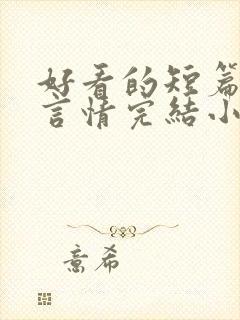 好看的短篇
言情完結小
意希